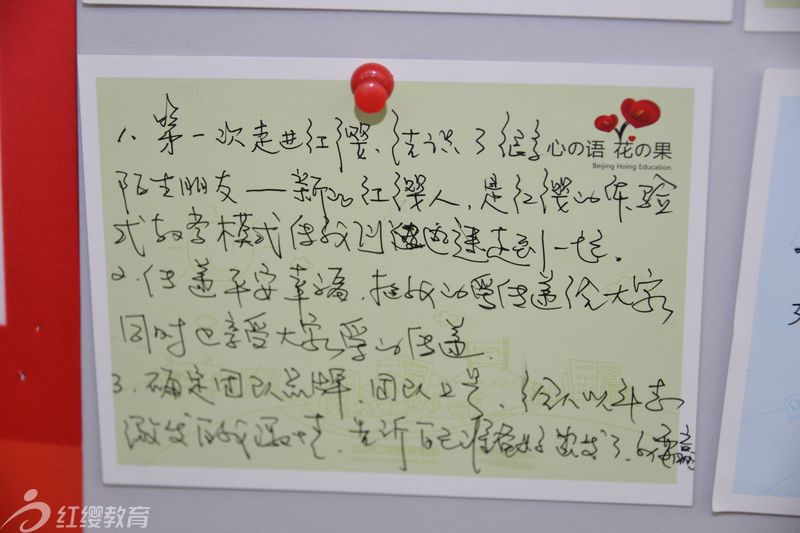 心の语 花の果
Beijing Hoing Education
1、第一次走进红缨、结识了很多
陌生朋友——新的红缨人,是红缨的体验
式教学模式使我们迅速走到一起.
2、传递平安幸福,把我的爱传递给大家
同时也享受大家爱的传递.
3、确定团队品牌,团队口号,给人以斗志
激发自我激情,告诉自己准备好出发了.
红缨教育